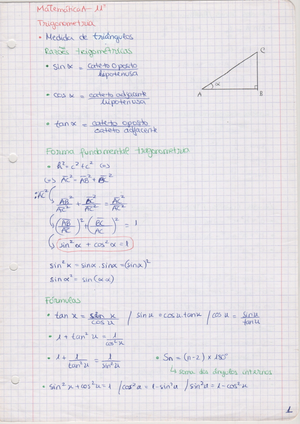 Matemática A - 11º
Trigonometria
• Medida de triângulos
Razões trigonométricas
• sin α = cateto oposto / hipotenusa
• cos α = cateto adjacente / hipotenusa
• tan α = cateto oposto / cateto adjacente
C
α
A
B
Fórmula fundamental trigonometria
• h² = c² + c² (=)
(=) AC² = AB² + BC²
:AC²
AB²/AC² + BC²/AC² = AC²/AC²
(AB/AC)² + (BC/AC)² = 1
sin² α + cos² α = 1
sin² α = sin α . sin α = (sin α)²
sin α² = sin (α.α)
Fórmulas
• tan α = sin α / cos α / sin α = cos α . tan α / cos α = sin α / tan α
• 1 + tan² α = 1 / cos² α
• 1 + 1 / tan² α = 1 / sin² α
• Sn = (n-2) × 180º
↳ soma dos ângulos internos
• sin² α + cos² α = 1 / cos² α = 1 - sin² α / sin² α = 1 - cos² α
1